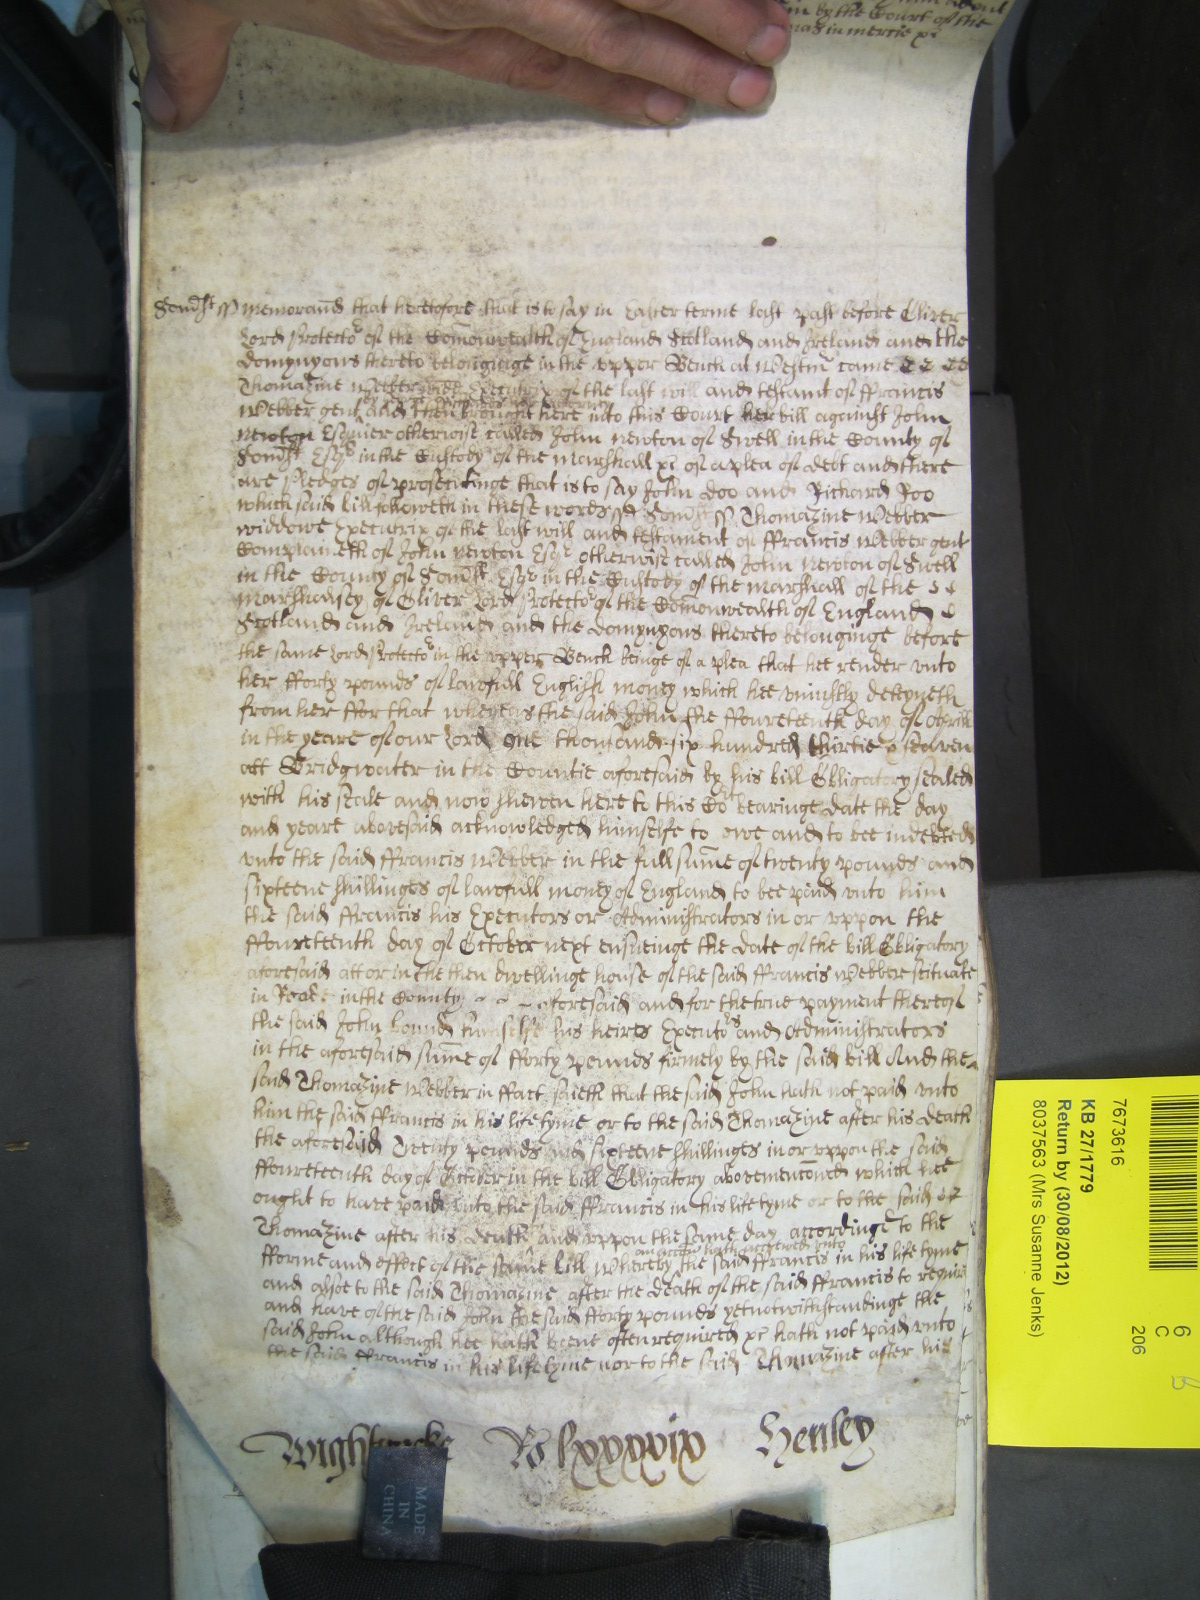 m by the Court of the
in mercie &c
Somst ss Memorand that heretofore that is to say in Easter terme last past before Oliver
Lord Protector of the Comonwealth of England Scotland and Ireland and the
domynyons thereto belonginge in the vpper Bench at Westmr came
Thomazine Webber widd Executrix of the last will and testamt of ffrancis
Webber gent and then brought here into this Court her bill against John
Newton Esquier otherwise called John Newton of Swell in the County of
Somst Esqr in the Custody of the Marshall &c of a plea of debt and there
are Pledges of prosecutinge that is to say John Doo and Richard Roo
which said bill followeth in these words ss Somst ss Thomazine Webber
widdowe Executrix of the last will and testament of ffrancis Webber gent
Complaineth of John Newton Esqr otherwise called John Newton of Swell
in the County of Somst Esqr in the Custody of the Marshall of the
Marshalsey of Oliver Lord Protector of the Comonwealth of England
Scotland and Ireland and the domynyons thereto belonginge before
the same Lord Protector in the vpper Bench beinge of a plea that hee render vnto
her fforty pounds of lawfull English money which hee vniustly deteyneth
from her ffor that whereas the said John the ffoureteenth day of Aprill
in the yeare of our Lord one thousand six hundred thirtie & seaven
att Bridgwater in the Countie aforesaid by his bill Obligatory sealed
with his seale and now shewen here to this Cort bearinge date the day
and yeare abovesaid acknowledged himselfe to owe and to bee indebted
vnto the said ffrancis Webber in the full sume of twenty pounds and
sixteene shillinges of lawfull money of England to bee paid vnto him
the said ffrancis his Executors or Administrators in or vppon the
ffoureteenth day of October next ensueinge the date of the bill Obligatory
aforesaid att or in the then dwellinge house of the said ffrancis Webber scituate
in in the County aforesaid and for the true payment thereof
the said John bound himselfe his heires Executors and Administrators
in the aforesaid sume of fforty pounds firmely by the said bill And the
said Thomazine Webber in ffact saieth that the said John hath not paid vnto
him the said ffrancis in his life tyme or to the said Thomazine after his death
the aforesaid Twenty pounds and sixteene shillinges in or vppon the said
ffoureteenth day of October in the bill Obligatory abovemenconed which hee
ought to have paid vnto the said ffrancis in his life tyme or to the said
Thomazine after his death and vppon the same day accordinge to the
an accon hath accrewed vnto
fforme and effect of the same bill whereby the said ffrancis in his life tyme
and alsoe to the said Thomazine after the death of the said ffrancis to require
and have of the said John the said fforty pounds yet notwithstandinge the
said John although hee hath beene often required &c hath not paid vnto
the said ffrancis in his life tyme nor to the said Thomazine after his
Wightwicke Ro lxxxxix Henley
MADE
IN
CHINA
7673616
KB 27/1779
Return by (30/08/2012)
8037563 (Mrs Susanne Jenks)
6
C
206